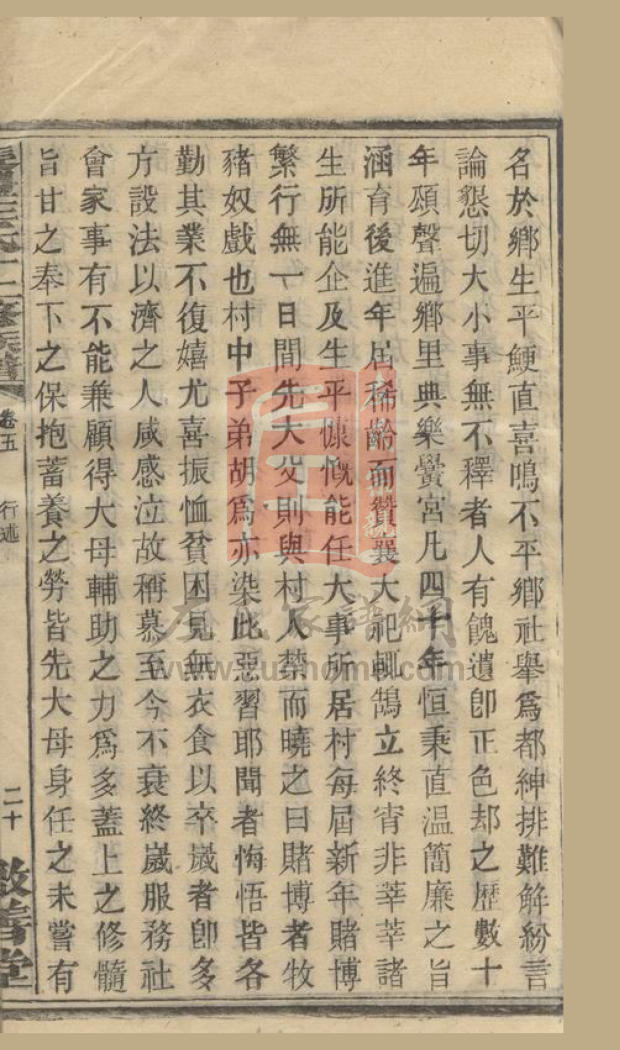 名於鄉生平鯁直喜鳴不平鄉社舉爲都紳排難解紛言
論懇切大小事無不釋者人有餽遺卽正色却之歷數十
年頌聲遍鄉里典樂黌宮凡四十年恒秉直溫簡廉之旨
涵育後進年屆稀齡而贊襄大祀輒鵠立終宵非莘莘諸
生所能企及生平慷慨能任大事所居村每屆新年賭博
繁行無一日間先大父則與村人禁而曉之曰賭博者牧
豬奴戲也村中子弟胡爲亦染此惡習耶聞者悔悟皆各
勤其業不復嬉尤喜振恤貧困見無衣食以卒歲者卽多
方設法以濟之人咸感泣故稱慕至今不衰終歲服務社
會家事有不能兼顧得大母輔助之力爲多蓋上之修髓
旨甘之奉下之保抱蓄養之勞皆先大母身任之未嘗有
卷五
行述
二十
敦善堂
www.xunhome.com